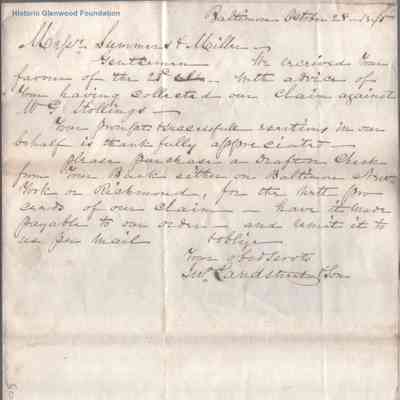 Historic Glenwood Foundation
Baltimore October 28
Messrs. Summers & Miller
Gentlemen We received Your
favour of the 25 with advice of
Your having collected our claim against
W G Stollings
Your prompt & successfull exertions in our
behalf is thankfully appreciated
please purchase a Draft or Check
from Your Bank either on Baltimore New
York or Richmond, for the nett pro
ceeds of our claim have it made
payable to our order and remit it to
us per mail & oblige
Your obed servts
Jno. Landstreet & Son